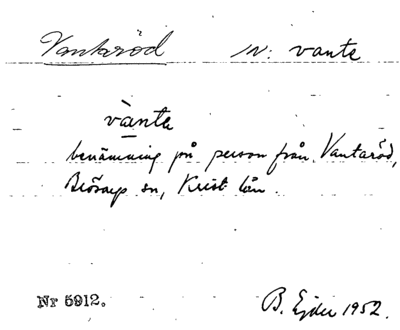 Vantaröd N: vante
vànte
benämning på person från Vantaröd,
Brösarp sn, Krist. län.
Nr 5912.
B. Ejder 1952.